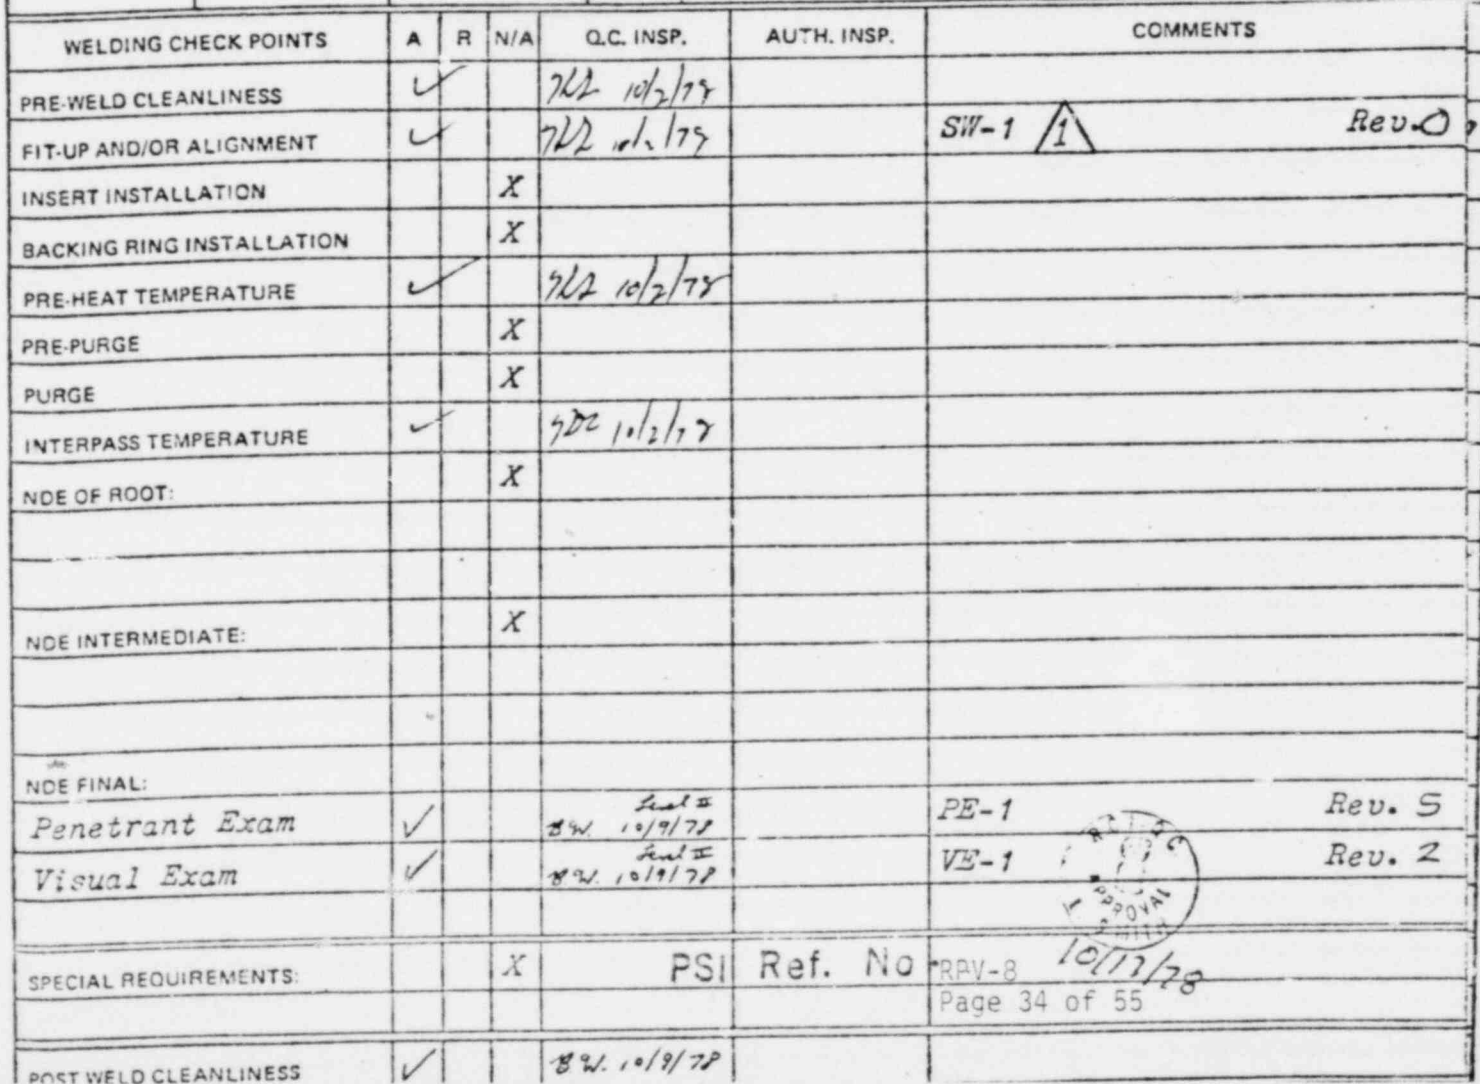 WELDING CHECK POINTS A R N/A Q.C. INSP. AUTH. INSP. COMMENTS
PRE-WELD CLEANLINESS ✓ 10/2/78
FIT-UP AND/OR ALIGNMENT ✓ 10/2/78 SW-1 1 Rev. 0
INSERT INSTALLATION X
BACKING RING INSTALLATION X
PRE-HEAT TEMPERATURE ✓ 10/2/78
PRE-PURGE X
PURGE X
INTERPASS TEMPERATURE ✓ 10/2/78
NDE OF ROOT: X
NDE INTERMEDIATE: X
NDE FINAL:
Level II
Penetrant Exam ✓ B.W. 10/9/78 PE-1 Rev. 5
Level II
Visual Exam ✓ B.W. 10/9/78 VE-1 Rev. 2
APPROVAL
SMITH
10/17/78
SPECIAL REQUIREMENTS: X PSI Ref. No RPV-8
Page 34 of 55
POST WELD CLEANLINESS ✓ B.W. 10/9/78